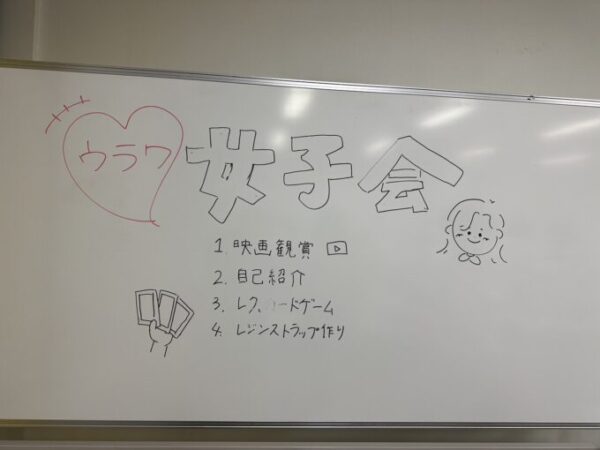 ウラワ
女子会
1. 映画観賞
2. 自己紹介
3. レク、ードゲーム
4. レジンストラップ作り